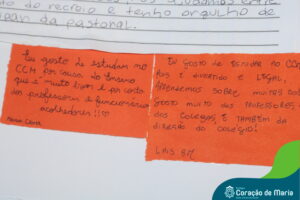 do recreio e tenho orgulho de
da pastoral.
Eu gosto de estudar no
CCM por causa do Ensino
que é muito bom e por conta
dos professores e funcionários
acolhedores!!!
Maria Clara
EU GOSTO DE ESTUDAR NO CCM
POIS É DIVERTIDO E LEGAL,
APRENDEMOS SOBRE MUITAS COISAS
GOSTO MUITO DOS PROFESSORES,
DOS COLEGAS, E TAMBÉM DA
DIREÇÃO DO COLÉGIO!
LAÍS 8M
Coração de Maria